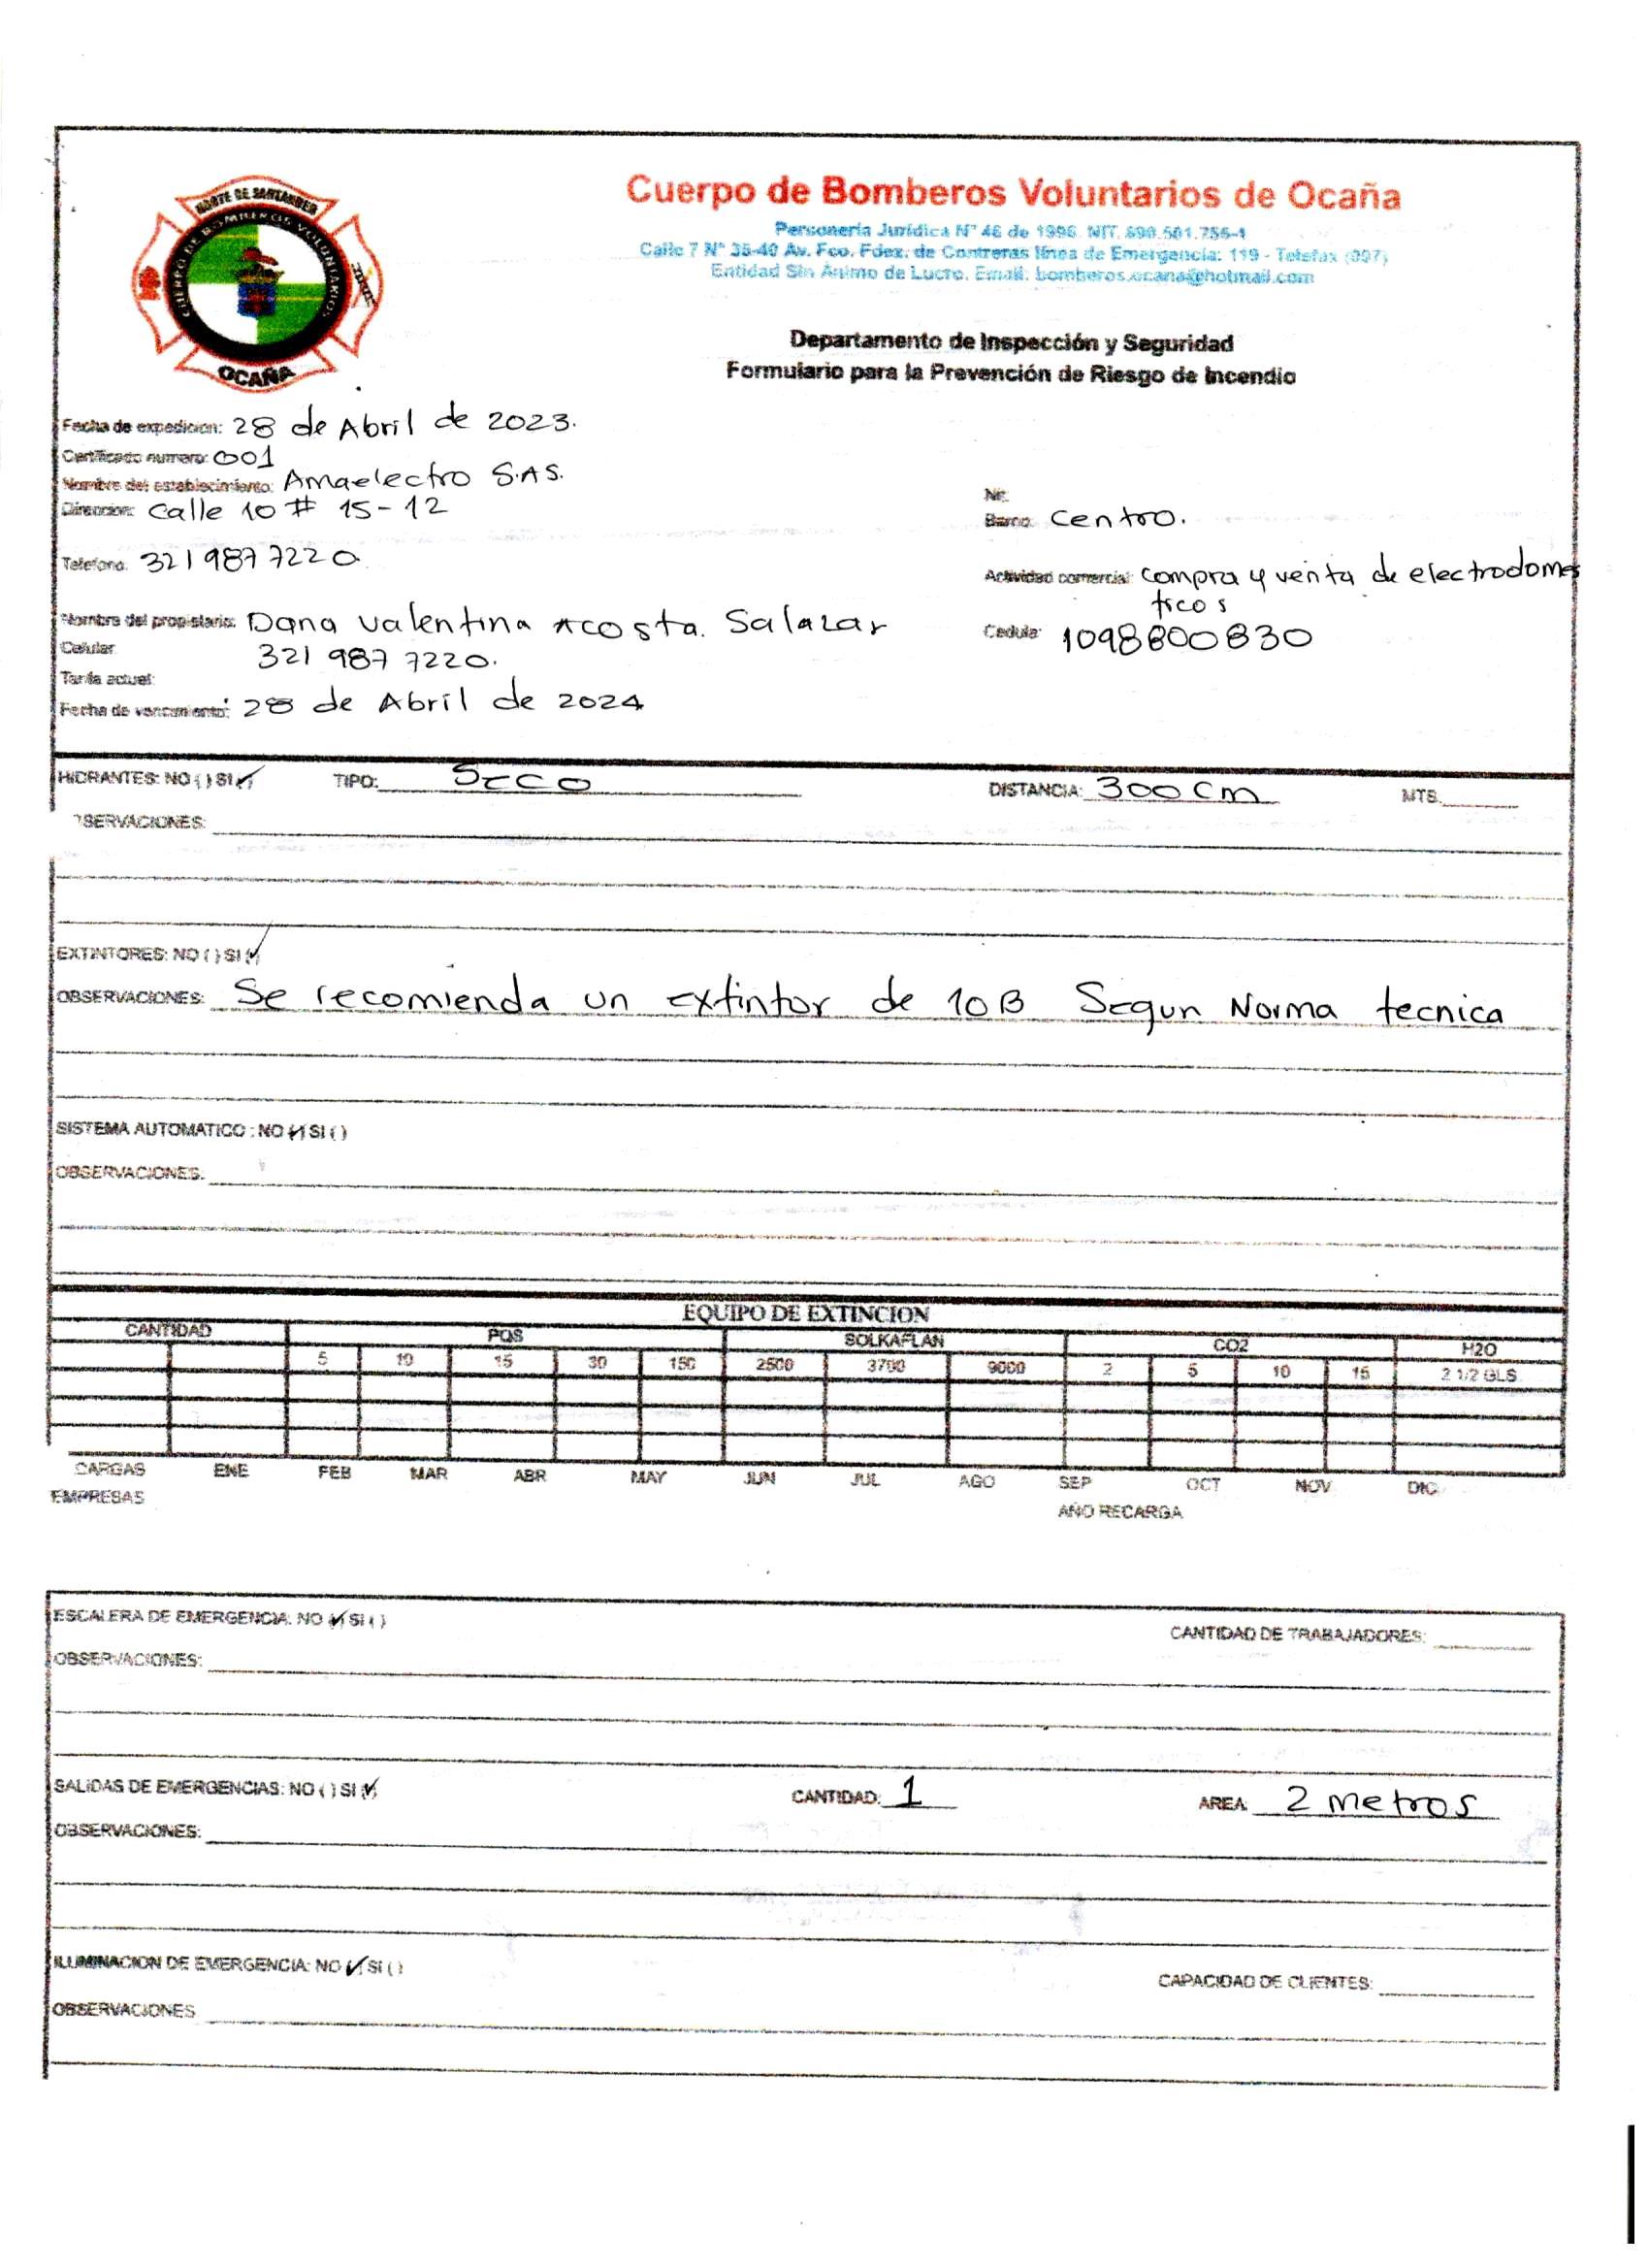 NORTE DE SANTANDER
CUERPO DE BOMBEROS VOLUNTARIOS
OCAÑA
Cuerpo de Bomberos Voluntarios de Ocaña
Personería Jurídica N° 46 de 1996. NIT. 890.501.755-1
Calle 7 N° 35-40 Av. Fco. Fdez. de Contreras línea de Emergencia: 119 - Telefax (097)
Entidad Sin Ánimo de Lucro. Email: bomberos.ocana@hotmail.com
Departamento de Inspección y Seguridad
Formulario para la Prevención de Riesgo de Incendio
Fecha de expedicion: 28 de Abril de 2023.
Certificado numero: 001
Nombre del establecimiento: Amaelectro S.A.S.
Nit:
Direccion: Calle 10 # 15-12
Barrio: Centro.
Telefono: 321 987 7220
Actividad comercial: compra y venta de electrodomes
ticos
Nombre del propietario: Dana Valentina Acosta. Salazar
Cedula: 1098800830
Celular: 321 987 7220.
Tarifa actual:
Fecha de vencimiento: 28 de Abril de 2024
HIDRANTES: NO ( ) SI (✓) TIPO: Seco DISTANCIA: 300 cm MTS.
OBSERVACIONES:
EXTINTORES: NO ( ) SI (✓)
OBSERVACIONES: Se recomienda un extintor de 10B Segun Norma tecnica
SISTEMA AUTOMATICO : NO (✓) SI ( )
OBSERVACIONES:
EQUIPO DE EXTINCION
CANTIDAD PQS SOLKAFLAN CO2 H2O
5 10 15 30 150 2500 3700 9000 2 5 10 15 2 1/2 GLS
CARGAS ENE FEB MAR ABR MAY JUN JUL AGO SEP OCT NOV DIC
EMPRESAS AÑO RECARGA
ESCALERA DE EMERGENCIA: NO (✓) SI ( ) CANTIDAD DE TRABAJADORES:
OBSERVACIONES:
SALIDAS DE EMERGENCIAS: NO ( ) SI (✓) CANTIDAD: 1 AREA: 2 metros
OBSERVACIONES:
ILUMINACION DE EMERGENCIA: NO (✓) SI ( ) CAPACIDAD DE CLIENTES:
OBSERVACIONES